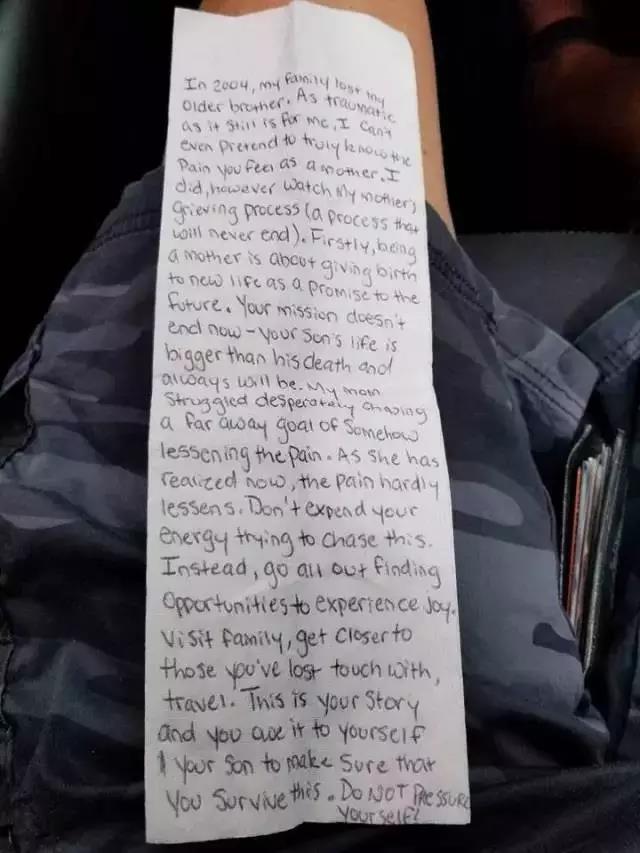 In 2004, my family lost my
older brother. As traumatic
as it still is for me, I can't
even pretend to truly know the
pain you feel as a mother. I
did, however watch my mother's
grieving process (a process that
will never end). Firstly, being
a mother is about giving birth
to new life as a promise to the
future. Your mission doesn't
end now - your son's life is
bigger than his death and
always will be. My mom
struggled desperately chasing
a far away goal of somehow
lessening the pain. As she has
realized now, the pain hardly
lessens. Don't expend your
energy trying to chase this.
Instead, go all out finding
opportunities to experience joy.
Visit family, get closer to
those you've lost touch with,
travel. This is your story
and you owe it to yourself
& your son to make sure that
you survive this. DO NOT PRESSURE
yourself!